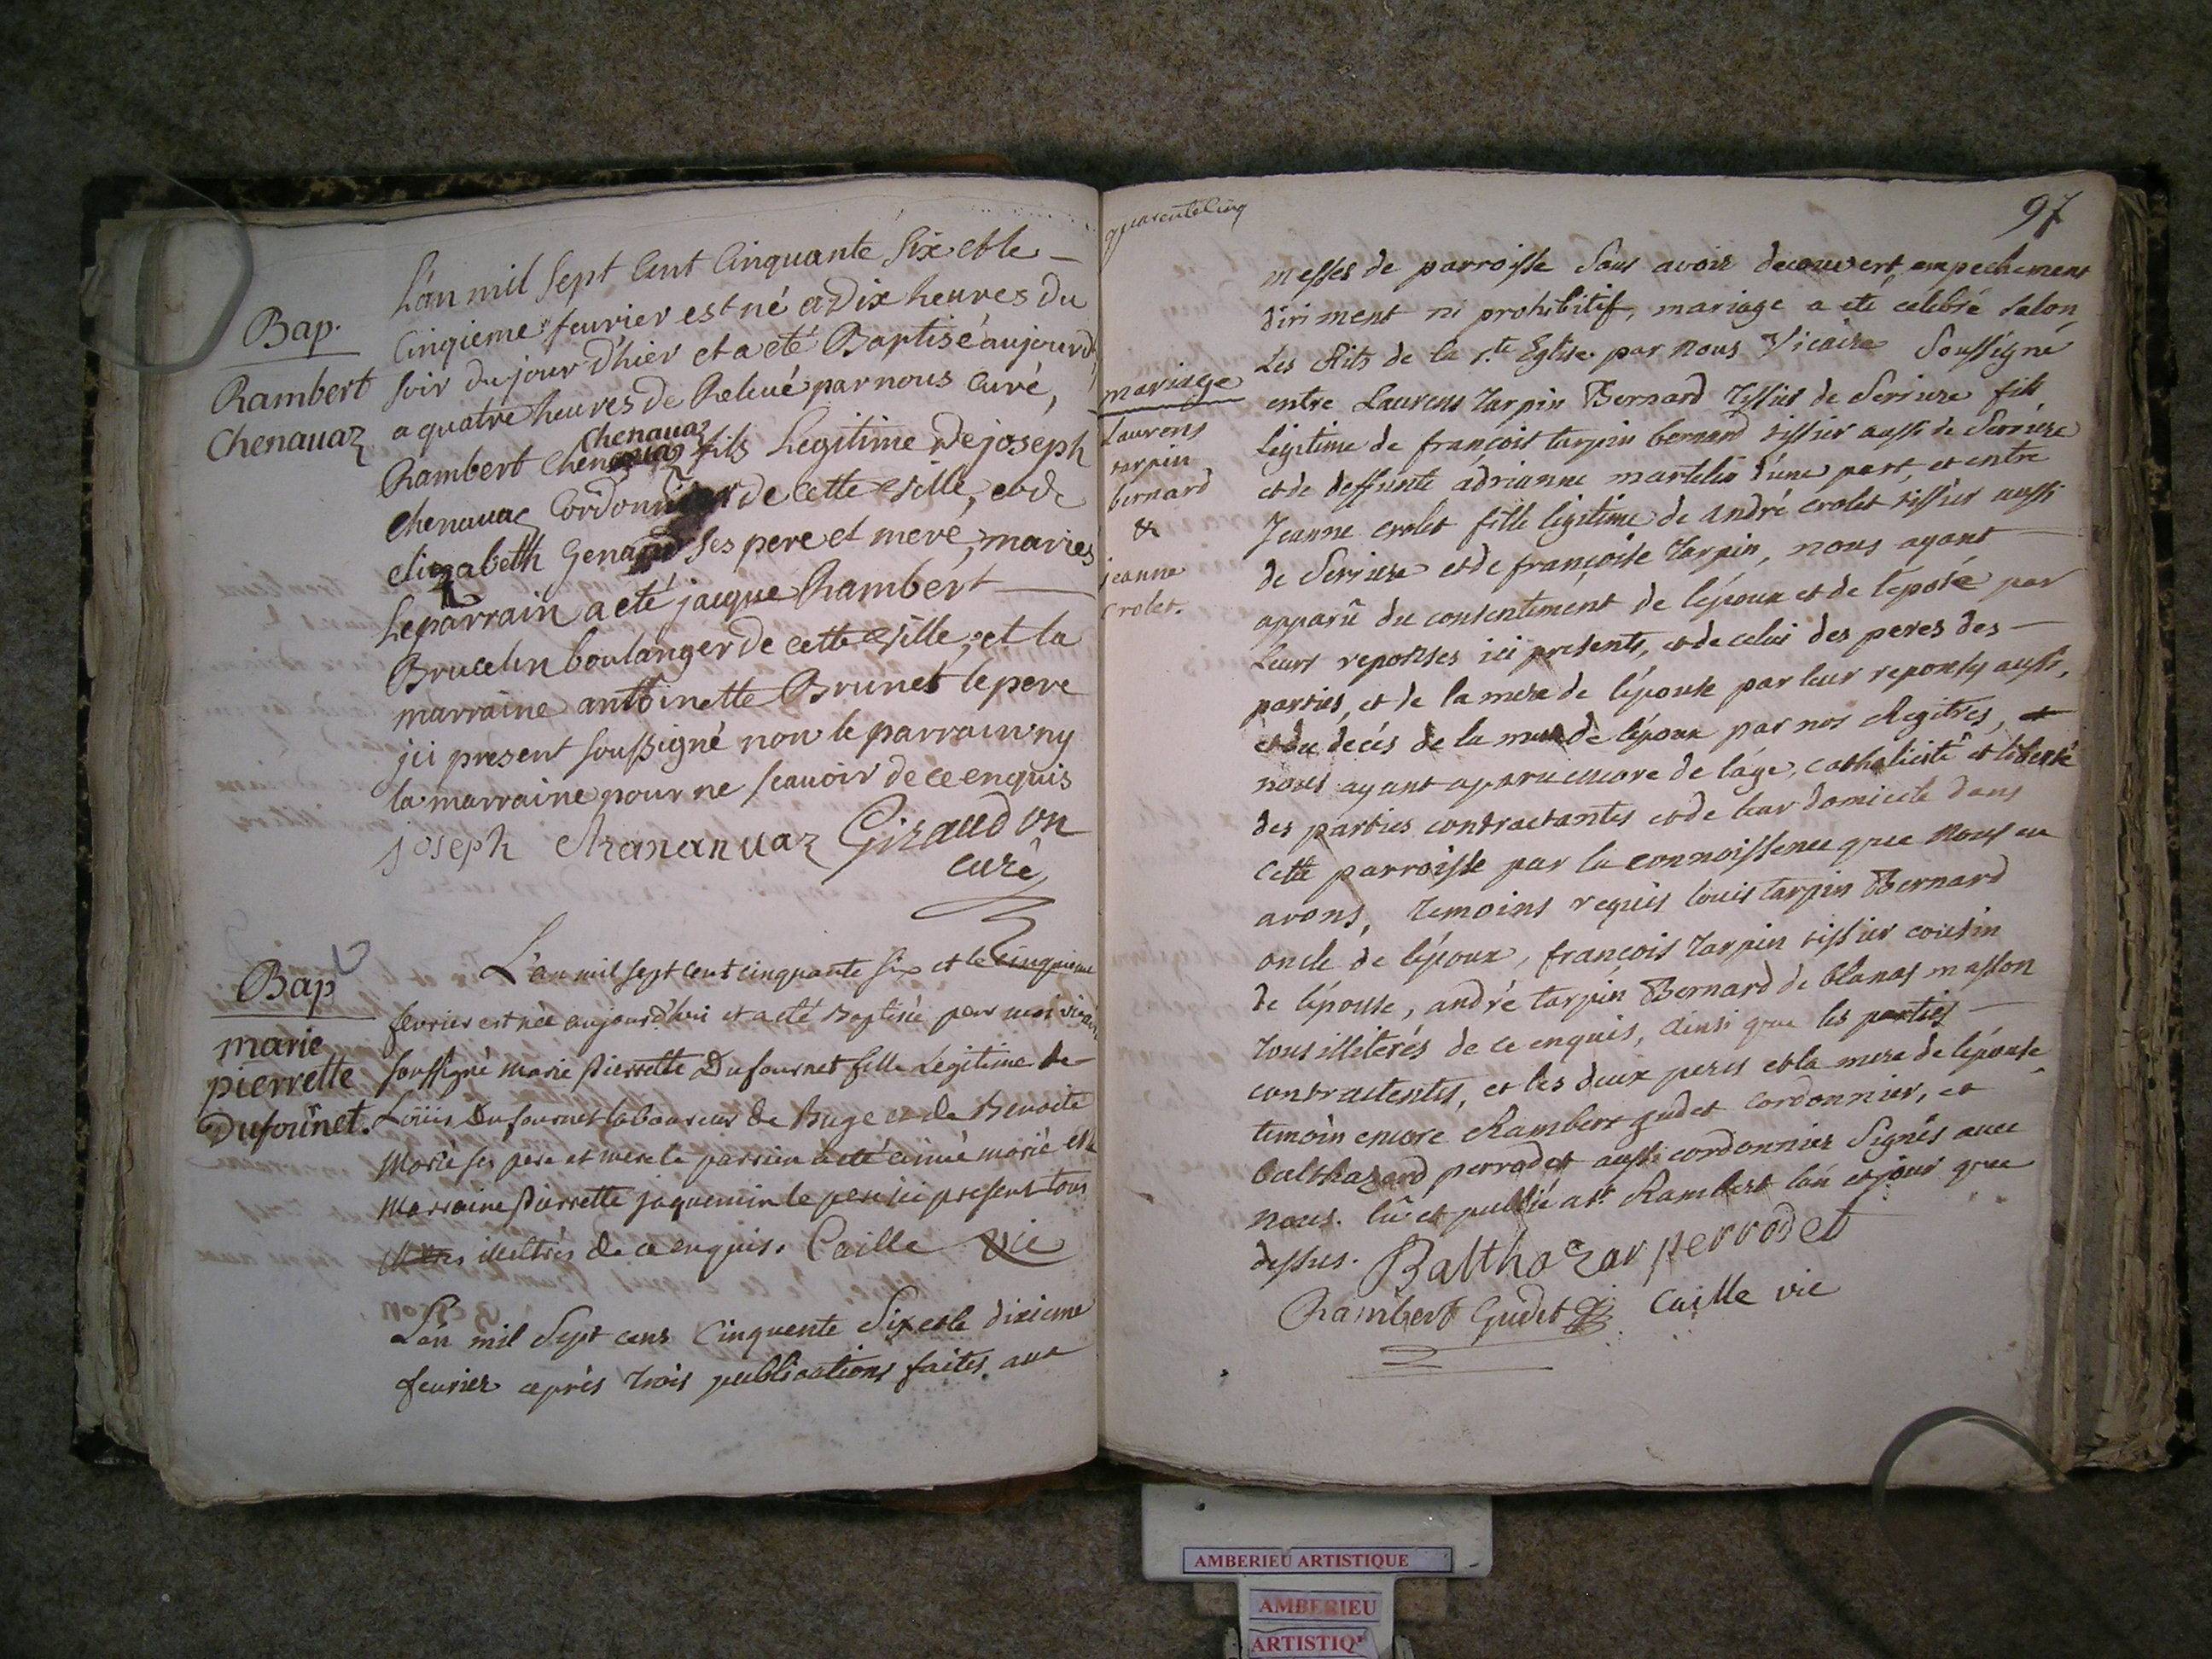 Bap.
Rambert
Chenauaz
L'an mil sept Cent Cinquante Six et le
Cinqieme feurier est né a Dix heures du
soir du jour d'hier et a eté Baptisé aujourd
a quatre heures de Releué par nous Curé,
chenauaz
Rambert chenauaz fils Legitime de joseph
chenauaz Cordonnier de Cette ville, et de
elizabeth Genand ses pere et meré, maries
Le parrain a eté jacque Rambert
Brucelin boulanger de cette ville, et la
marraine anthoinette Brunet le pere
jci present soussigné non le parrain ny
la marraine pour ne scauoir de ce enquis
joseph Chananuaz Giraudon
curé
Bap
marie
pierrette
Dufournet.
L'an mil sept cent cinquante six et le cinquieme
fevrier est née aujourd'hui et a eté Baptisée par moi vicaire
soussigné marie pierrette Dufournet fille Legitime de
Loüis Dufournet laboureur de Buge et de Benoite
Morié ses pere et mere le parrain a eté aimé morié et la
Marraine pierrette jaquemin le pere ici present tous
illeltrés de ce enquis. Caille vic
L'an mil Sept cens Cinquente Six et le dixieme
feurier après trois publications faites aux
quarentecinq
97
mariage
Laurens
tarpin
bernard
&
jeanne
Crolet.
messes de parroisse Sans avoir decouvert empechement
diriment ni prohibitif, mariage a eté célébré selon
Les Rits de la s.te Eglise par nous Vicaire Soussigné
entre Laurens Tarpin Bernard tissier de Serriere fils
Légitime de françois tarpin bernard tissier aussi de Serriere
et de deffunte adrianne martelin d'une part, et entre
Jeanne crolet fille légitime de andré crolet tissier aussi
de Serriere et de françoise tarpin, nous ayant
apparû du consentement de l'époux et de l'épouse par
Leurs reponses ici presents, et de celui des peres des
parties, et de la mere de l'épouse par leur reponses aussi,
et du decés de la mere de l'époux par nos Registres,
nous ayant apparu encore de l'age, catholicité et liberté
des parties contractantes et de leur domicile dans
Cette parroisse par la connoissance que nous en
avons, temoins requis louis tarpin Bernard
oncle de l'époux, françois tarpin tissier cousin
de l'épouse, andré tarpin Bernard de blanas masson
tous illiterés de ce enquis, ainsi que les parties
contractentes, et les deux peres et la mere de l'épouse
temoin encore Rambert gudet cordonnier, et
balthazard perrodet aussi cordonnier Signés avec
nous. lû et publié a st Rambert l'an et jour que
dessus. Balthazar perrodet
Rambert Gudet Caille vic
AMBERIEU ARTISTIQUE
AMBERIEU
ARTISTIQ